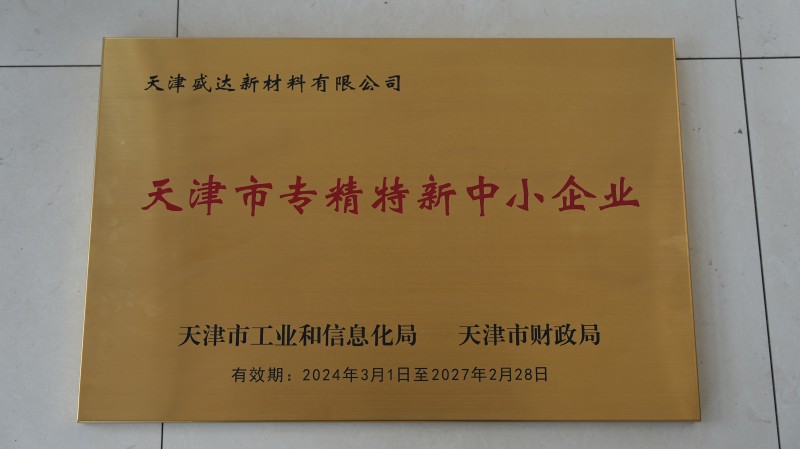 天津盛达新材料有限公司
天津市专精特新中小企业
天津市工业和信息化局 天津市财政局
有效期：2024年3月1日至2027年2月28日